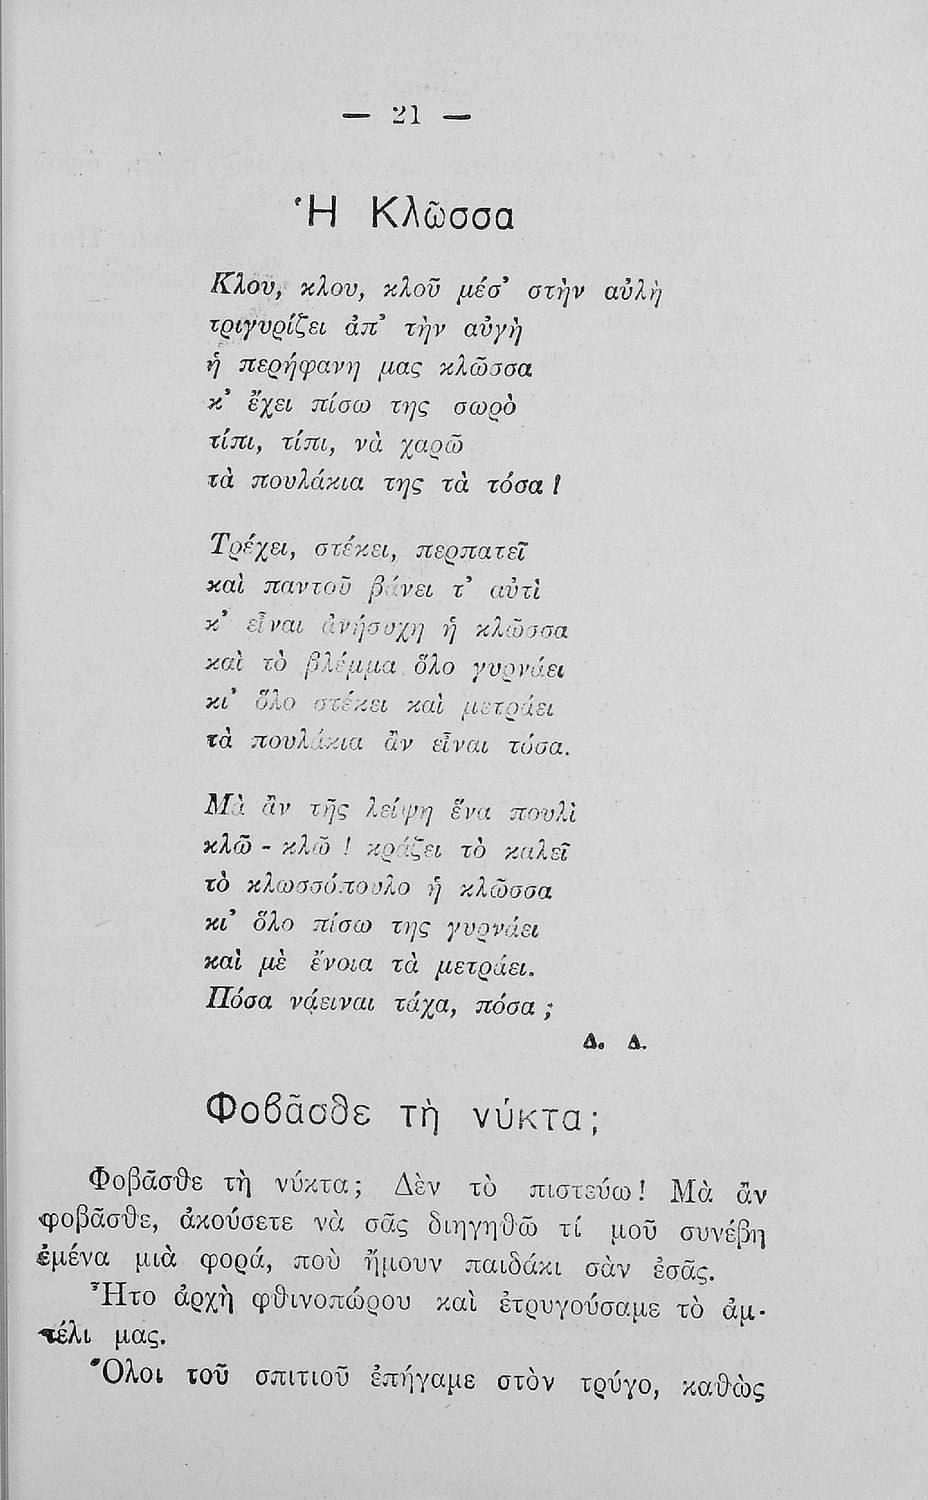 — 21 —
Ἡ Κλῶσσα
Κλου, κλου, κλοῦ μέσ᾽ στὴν αὐλὴ
τριγυρίζει ἀπ᾽ τὴν αὐγὴ
ἡ περήφανη μας κλῶσσα
κ᾽ ἔχει πίσω της σωρὸ
τίπι, τίπι, νὰ χαρῶ
τὰ πουλάκια της τὰ τόσα !
Τρέχει, στέκει, περπατεῖ
καὶ παντοῦ βάνει τ᾽ αὐτὶ
κ᾽ εἶναι ἀνήσυχη ἡ κλῶσσα
καὶ τὸ βλέμμα ὅλο γυρνάει
κι᾽ ὅλο στέκει καὶ μετράει
τὰ πουλάκια ἂν εἶναι τόσα.
Μὰ ἂν τῆς λείψη ἕνα πουλὶ
κλῶ - κλῶ ! κράζει τὸ καλεῖ
τὸ κλωσσόπουλο ἡ κλῶσσα
κι᾽ ὅλο πίσω της γυρνάει
καὶ μὲ ἔνοια τὰ μετράει.
Πόσα νάειναι τάχα, πόσα ;
Δ. Δ.
Φοβᾶσθε τὴ νύκτα;
Φοβᾶσθε τὴ νύκτα; Δὲν τὸ πιστεύω! Μὰ ἂν
φοβᾶσθε, ἀκούσετε νὰ σᾶς διηγηθῶ τί μοῦ συνέβη
ἐμένα μιὰ φορά, ποὺ ἤμουν παιδάκι σὰν ἐσᾶς.
Ἦτο ἀρχὴ φθινοπώρου καὶ ἐτρυγούσαμε τὸ ἀμ-
πέλι μας.
Ὅλοι τοῦ σπιτιοῦ ἐπήγαμε στὸν τρύγο, καθὼς